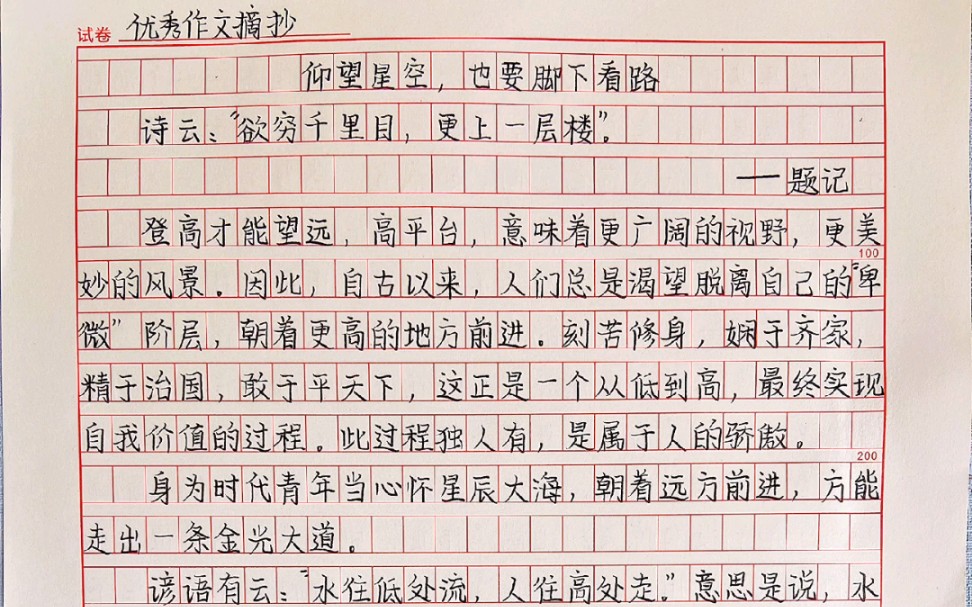 试卷 优秀作文摘抄
仰望星空，也要脚下看路
诗云："欲穷千里目，更上一层楼"。
——题记
登高才能望远，高平台，意味着更广阔的视野，更美
100
妙的风景。因此，自古以来，人们总是渴望脱离自己的"卑
微"阶层，朝着更高的地方前进。刻苦修身，娴于齐家，
精于治国，敢于平天下，这正是一个从低到高，最终实现
自我价值的过程。此过程独人有，是属于人的骄傲。
200
身为时代青年当心怀星辰大海，朝着远方前进，方能
走出一条金光大道。
谚语有云："水往低处流，人往高处走。"意思是说，水